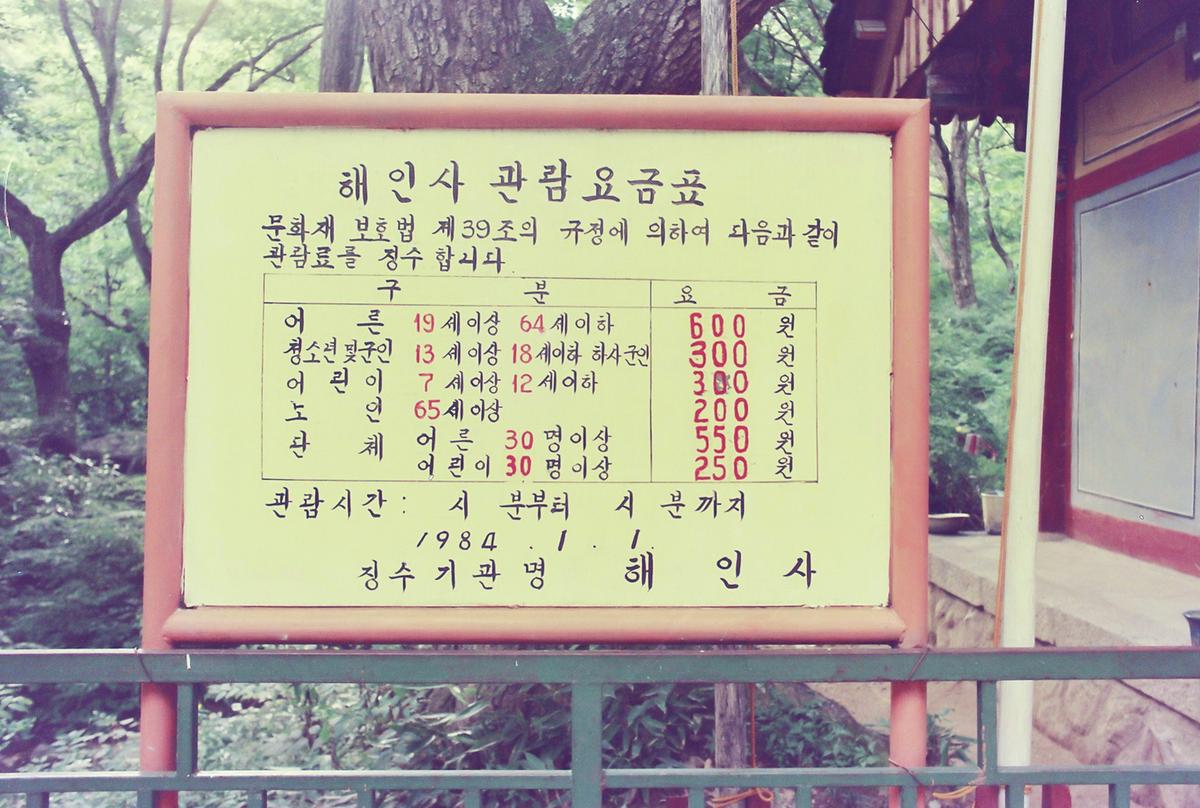 해인사 관람요금표
문화재 보호법 제39조의 규정에 의하여 다음과 같이
관람료를 징수 합니다
구 분 요 금
어 른 19 세이상 64 세이하 600 원
청소년 및 군인 13 세이상 18 세이하 하사군인 300 원
어 린 이 7 세이상 12 세이하 300 원
노 인 65 세이상 200 원
단 체 어 른 30 명이상 550 원
어린이 30 명이상 250 원
관람시간 : 시 분부터 시 분까지
1984 . 1 . 1.
징수기관명 해 인 사